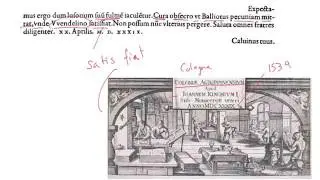 Exposta-
mus ergo dum Iusonem suū fulmē iaculētur. Cura obsecro vt Balliotus pecuniam mit-
tat, vnde Vvendelino satisfiat. Non possum nūc vlterius pergere. Saluta omnes fratres
diligenter. XX. Aprilis. M. D. XXXIX.
Caluinus tuus.
satis fiat
Cologne
1539
COLONIAE AGRIPPINENSIVM
Apud
IOANNEM KINCHIVM
sub Monocerote veteri
ANNO MDC XXXIX